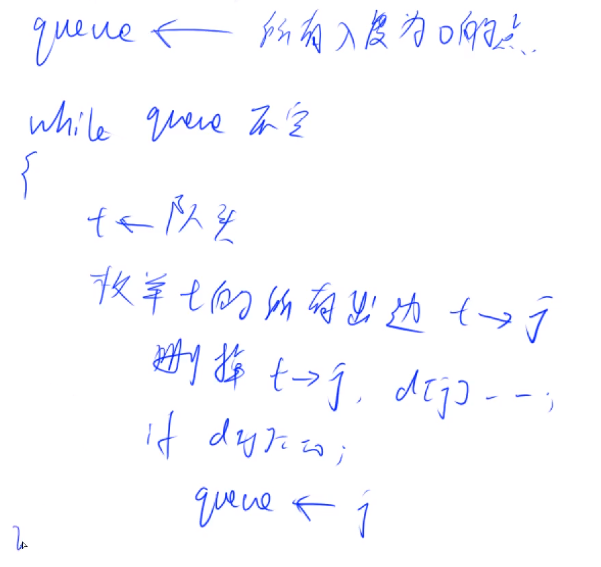 queue ← 所有入度为0的点
while queue 不空
{
t ← 队头
枚举 t的所有出边 t → j
删掉 t → j, d[j] --;
if d[j]==0;
queue ← j
}